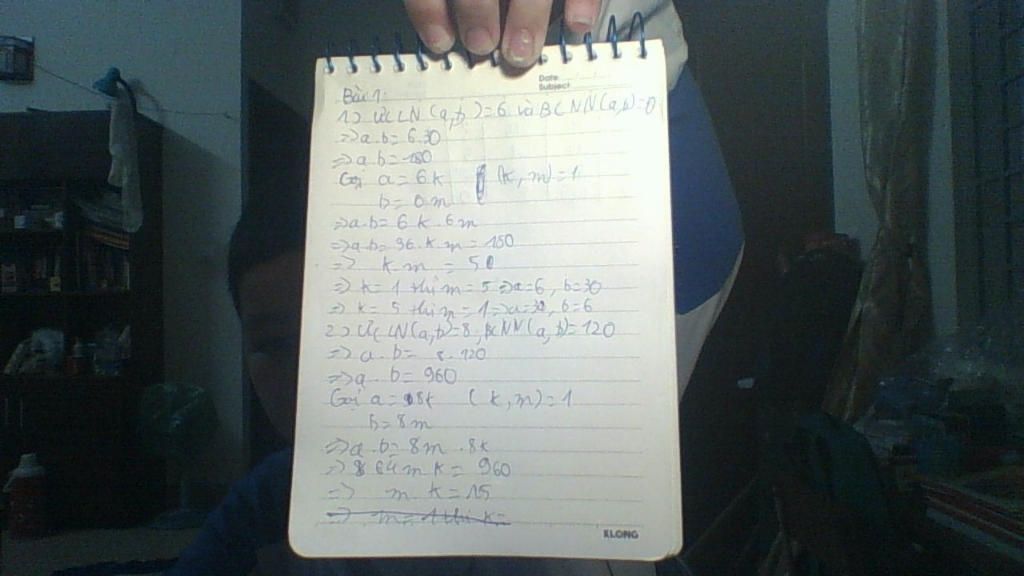 Date
Subject
Bài 1:
1) ƯCLN(a,b)=6 và BCNN(a,b)=0
=> a.b=6.30
=> a.b=180
Gọi a=6k (k,m)=1
b=6m
=> a.b=6k.6m
=> a.b=36.k.m=180
=> k.m=5
=> k=1 thì m=5=>a=6, b=30
=> k=5 thì m=1=>a=30, b=6
2) ƯCLN(a,b)=8, BCNN(a,b)=120
=> a.b= 8.120
=> a.b=960
Gọi a=8k (k,m)=1
b=8m
=> a.b=8m.8k
=> 64mk=960
=> m k=15
=> m=1 thì k=
KLONG